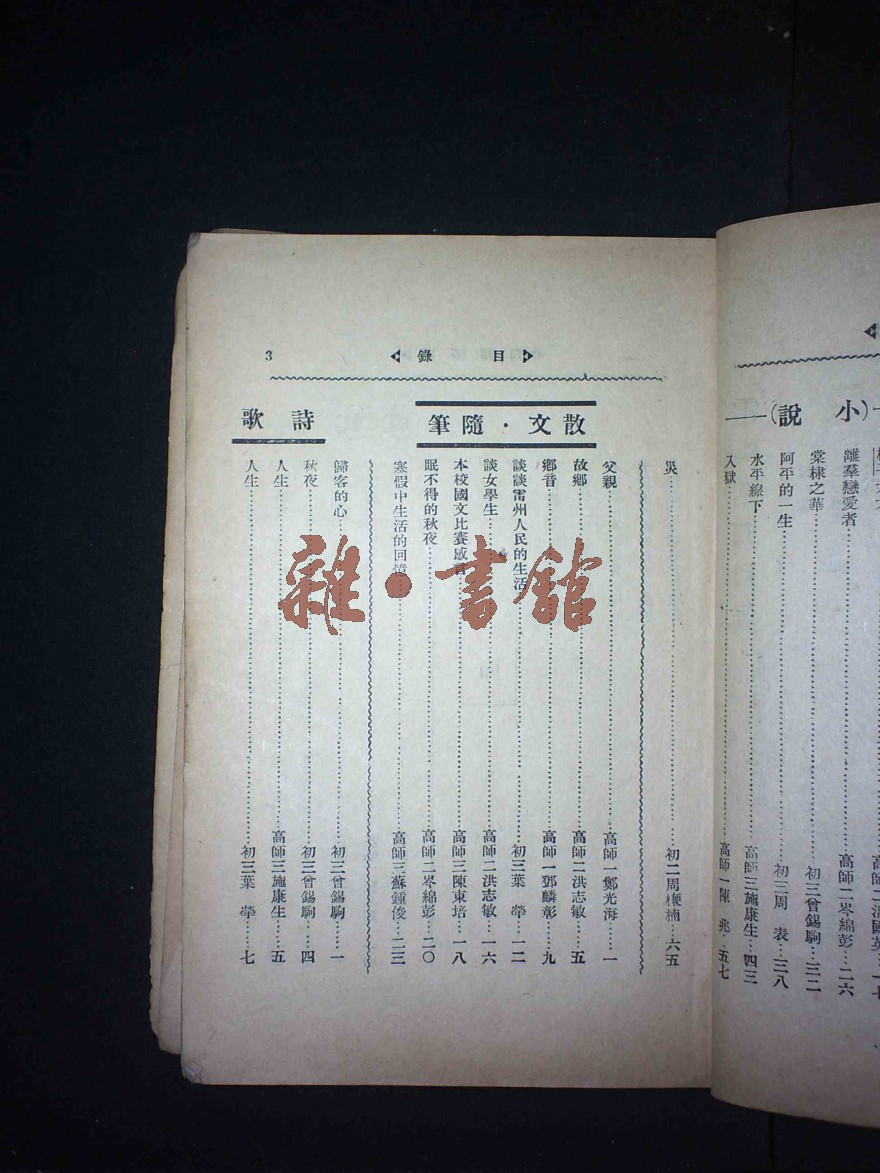 (小說)
離羣戀愛者……高師二岑綿彭…二六
棠棣之華……初三曾錫駒…三二
阿平的一生……初三周 表…三八
水平線下……高師三施康生…四三
入獄……高師一陳 兆…五七
目錄
3
災……初二周楩楠…六五
散文·隨筆
父親……高師一鄭光海……一
故鄉……高師二洪志敏……五
鄉音……高師一鄧麟彰……九
談談雷州人民的生活……初三葉 犖…一二
談女學生……高師二洪志敏…一六
本校國文比賽感言……高師三陳東培…一八
眠不得的秋夜……高師二岑綿彭…二〇
寒假中生活的回憶……高師三蘇鍾俊…二三
詩歌
歸客的心……初三曾錫駒……一
秋夜……初三曾錫駒……四
人生……高師三施康生……五
人生……初三葉 犖……七
雜·書館